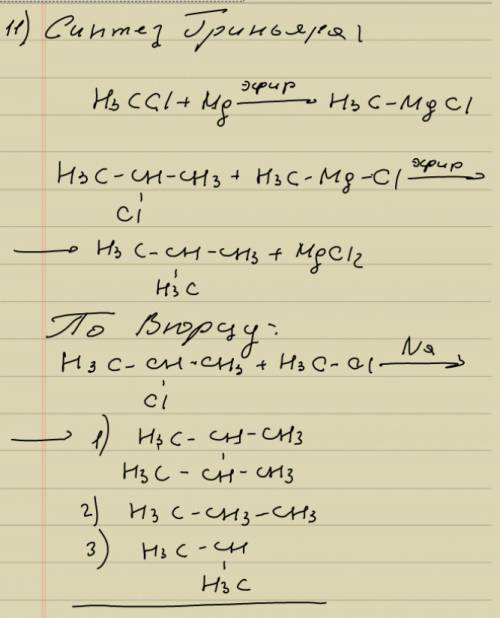 11) Синтез Гриньяра,
H3CCl + Mg эфир→ H3C-MgCl
H3C-CH-CH3 + H3C-Mg-Cl эфир→
Cl
→ H3C-CH-CH3 + MgCl2
H3C
По Вюрцу:
H3C-CH-CH3 + H3C-Cl Na→
Cl
→ 1) H3C-CH-CH3
H3C-CH-CH3
2) H3C-CH3-CH3
3) H3C-CH
H3C